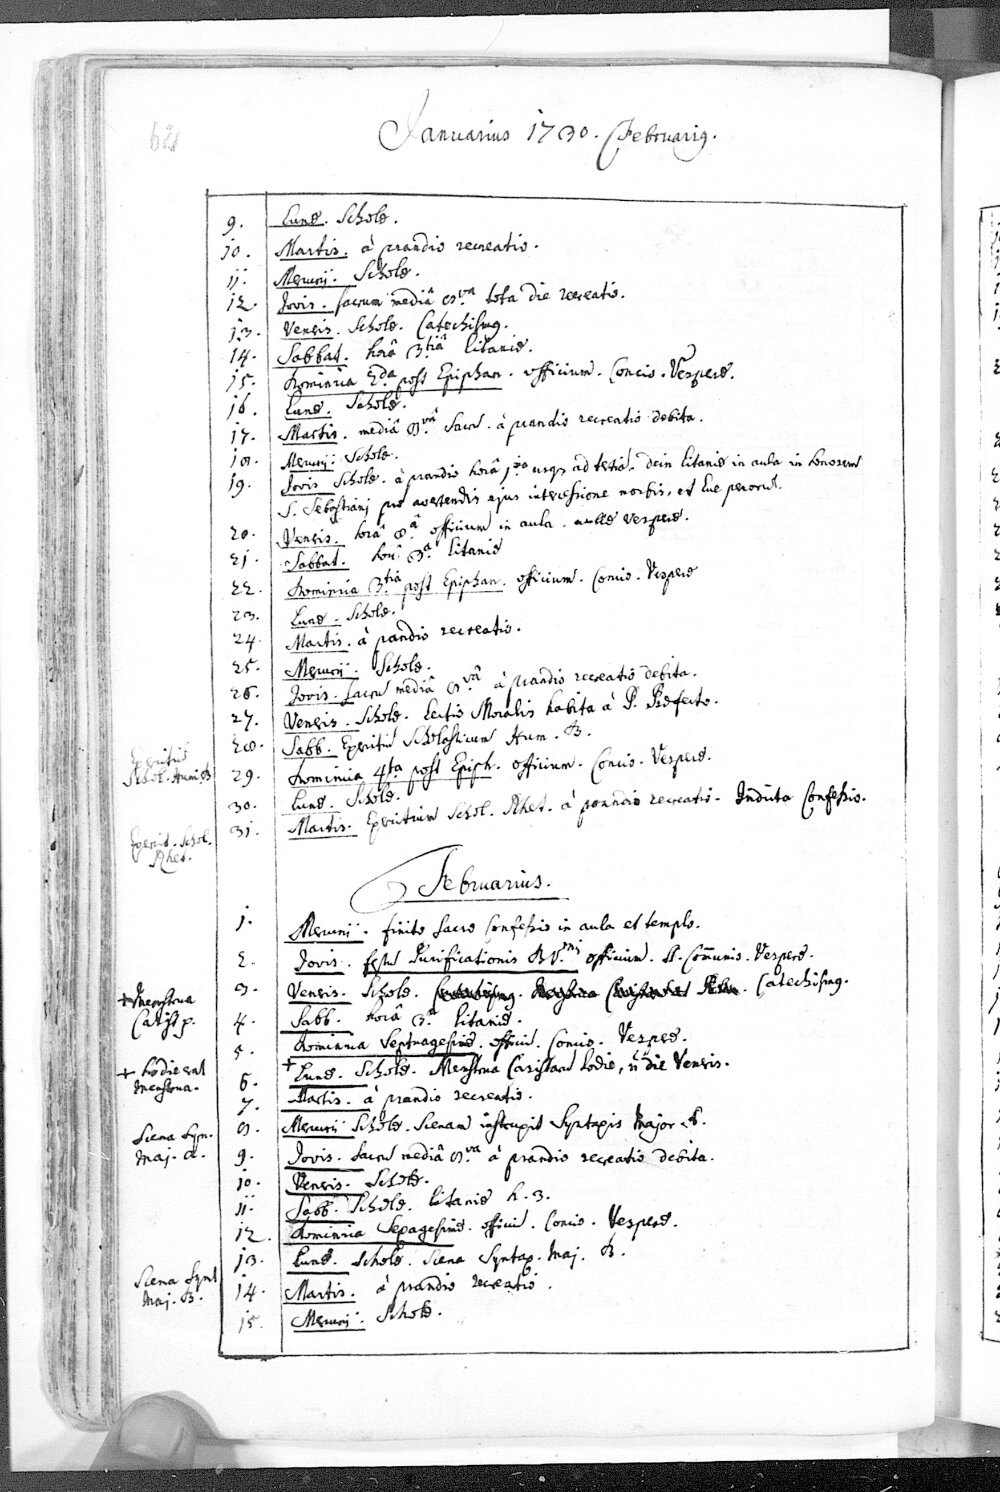 62
Januarius 1730. Februarig.
9. Lunæ. Scholæ.
10. Martis. à prandio recreatio.
11. Mercurij. Scholæ.
12. Jovis. sacrum mediâ 8.va tota die recreatio.
13. Veneris. Scholæ. Catechismg.
14. Sabbat. horâ 3.tiâ litaniæ.
15. Dominica 2.da post Epiphan. officium. Concio. Vesperæ.
16. Lunæ. Scholæ.
17. Martis. mediâ 8.vâ Sacru. à prandio recreatio debita.
18. Mercurij. Scholæ.
19. Jovis Scholæ. à prandio horâ 1.ma usqz ad tertia. dein litaniæ in aula in honorem
S. Sebastiani pro avertendis ejus intercessione morbis, et lue pecorum.
20. Veneris. horâ 8.â officium in aula. nullæ vesperæ.
21. Sabbat. horâ 3.a litaniæ
22. Dominica 3.tia post Epiphan. officium. Concio. Vesperæ
23. Lunæ. Scholæ.
24. Martis. à prandio recreatio.
25. Mercurij. Scholæ.
26. Jovis. sacru mediâ 8.vâ à prandio recreatio debita.
27. Veneris. Scholæ. Lectio Moralis habita à P. Præfecto.
Exercitiu
Schol. Hum. B
28. Sabb. Exercitiu Scholasticum Hum. B.
29. Dominica 4.ta post Epiph. officium. Concio. Vesperæ.
30. Lunæ. Scholæ.
Exercit. Schol.
Rhet.
31. Martis. Exercitium Schol. Rhet. à prandio recreatio. Indicta Confessio.
Februarius.
1. Mercurij. finito Sacro Confessio in aula et templo.
2. Jovis. festu Purificationis B.V. officium. S. Com̄unio. Vesperæ.
+ Menstrua
Carist p.
3. Veneris. Scholæ. Catechismg.
4. Sabb. horâ 3.a litaniæ.
5. Dominica Septuagesimæ. officiu. Concio. Vesperæ.
+ hodie erat
Menstrua.
6. + Lunæ. Scholæ. Menstrua Caristaru hodie, n̄ die Veneris.
7. Martis. à prandio recreatio.
Scena Syn.
Maj. A.
8. Mercurij Scholæ. Scenam instruxit Syntaxis Major A.
9. Jovis. Sacru mediâ 8.va à prandio recreatio debita.
10. Veneris. Scholæ.
11. Sabb. Scholæ. litaniæ h. 3.
12. Dominica Sexagesimæ. officiu. Concio. Vesperæ.
Scena Synt
Maj. B.
13. Lunæ. Scholæ. Scena Syntax. Maj. B.
14. Martis. à prandio recreatio.
15. Mercurij. Scholæ.